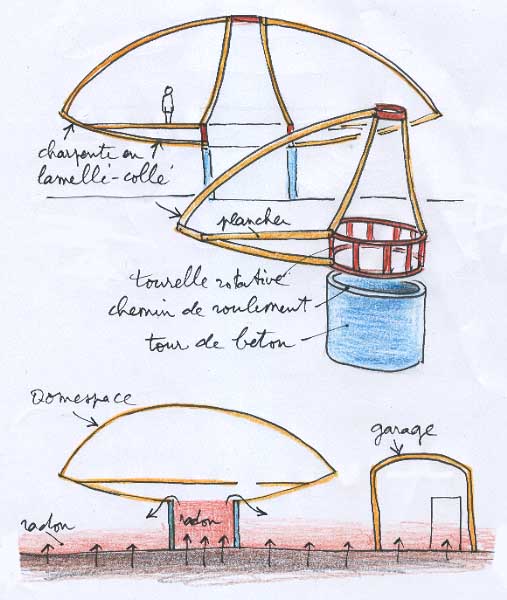 charpente en
lamellé-collé
plancher
tourelle rotative
chemin de roulement
tour de beton
Domespace
garage
radon
radon